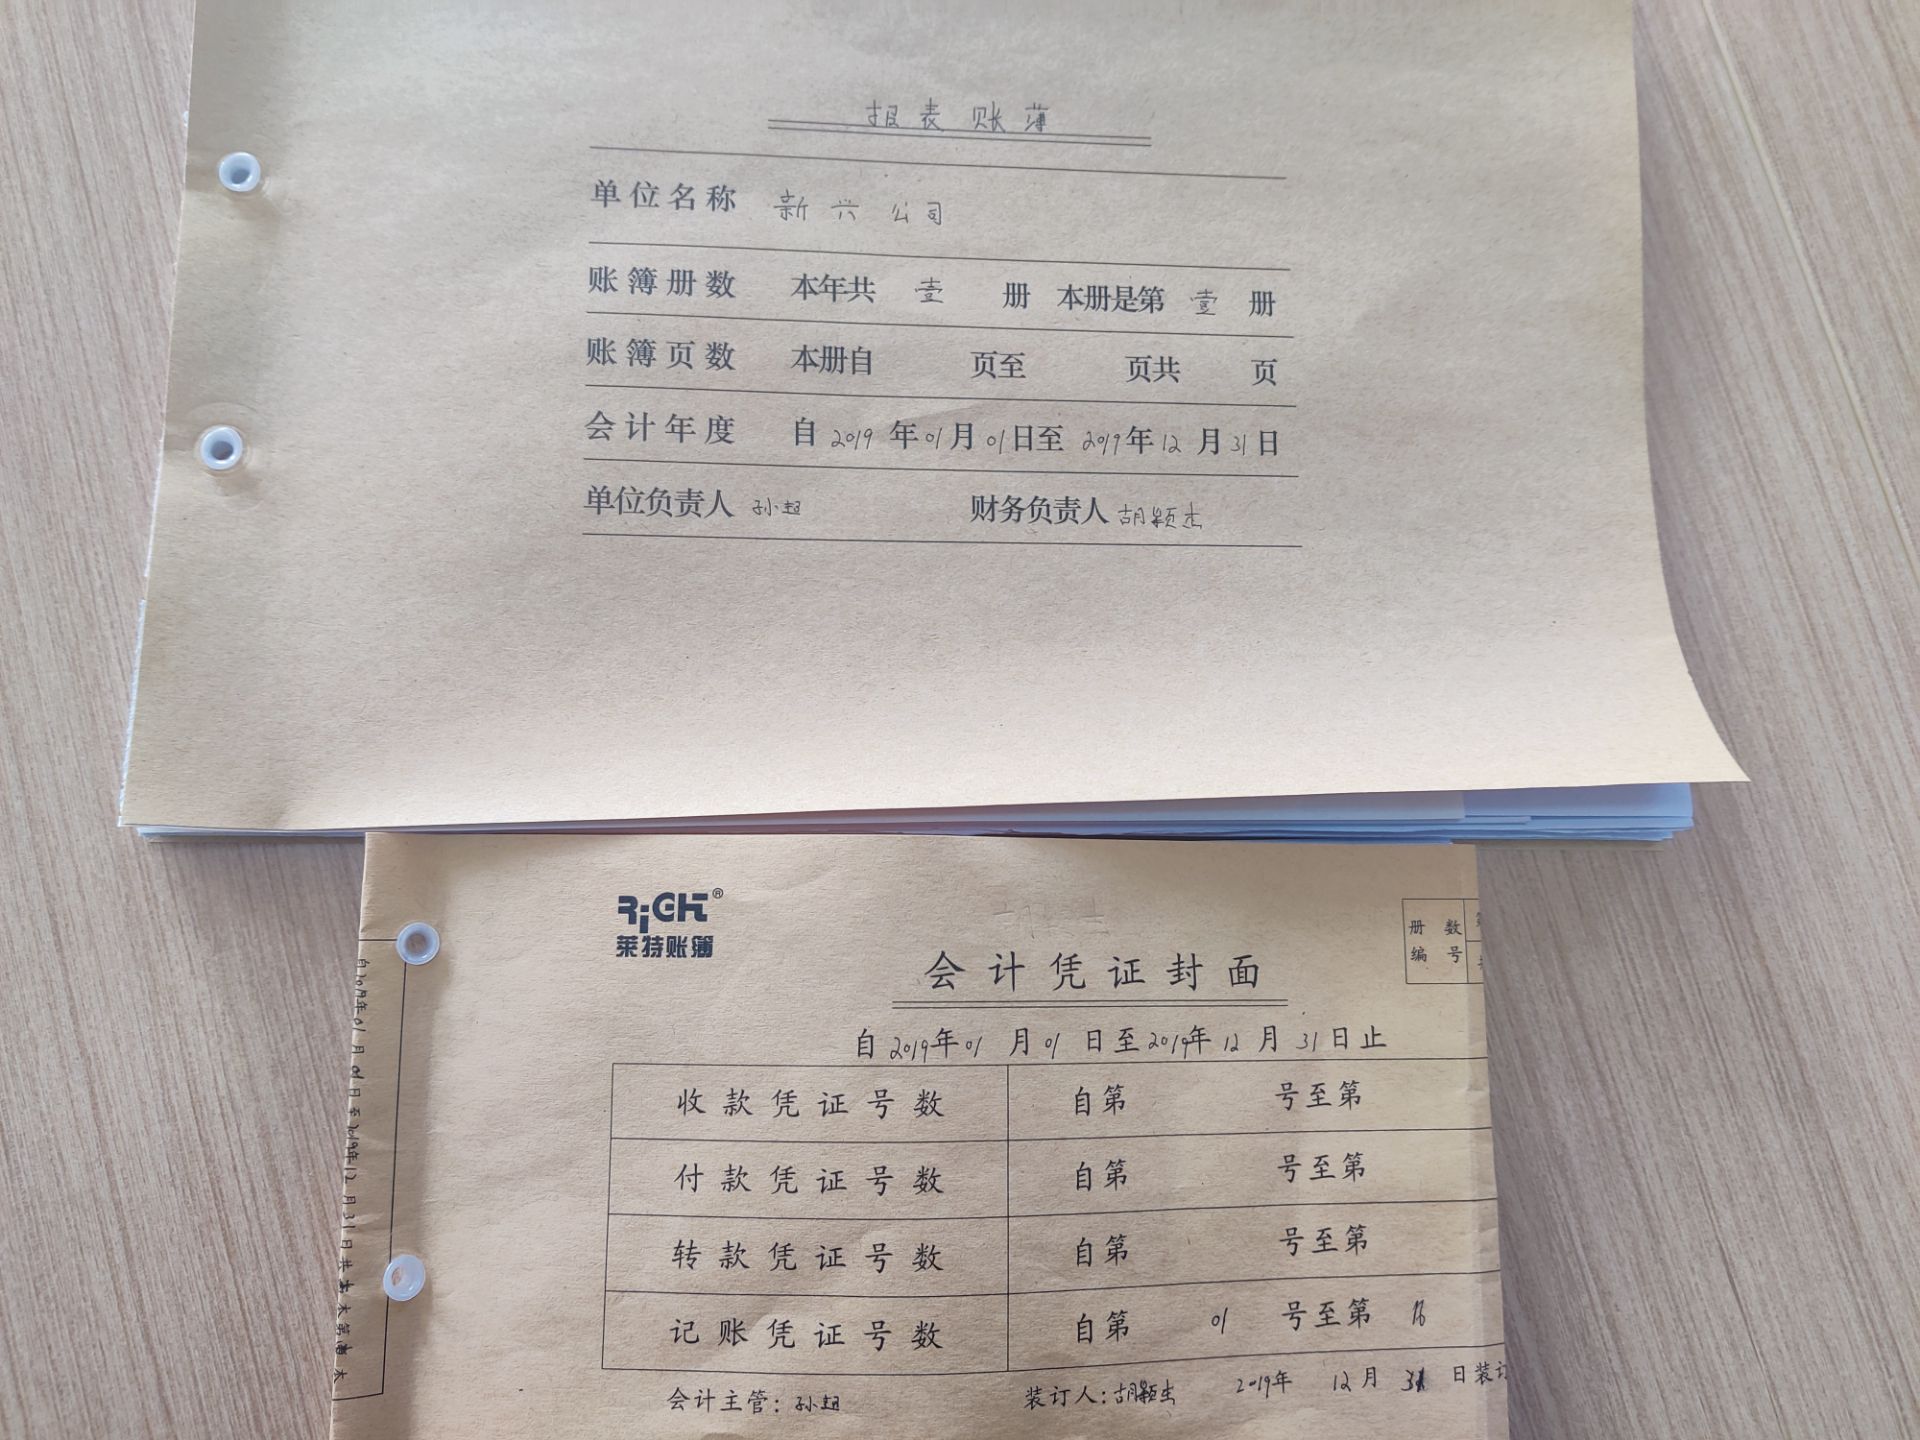 报表账薄
单位名称 新兴公司
账簿册数 本年共 壹 册 本册是第 壹 册
账簿页数 本册自 页至 页共 页
会计年度 自 2019 年 01 月 01 日至 2019 年 12 月 31 日
单位负责人 孙超 财务负责人 胡颖杰
RiGHT®
莱特账簿
册数
编号
会计凭证封面
自 2019 年 01 月 01 日至 2019 年 12 月 31 日止
收款凭证号数 自第 号至第
付款凭证号数 自第 号至第
转款凭证号数 自第 号至第
记账凭证号数 自第 01 号至第 16
会计主管：孙超 装订人：胡颖杰 2019年 12月 31 日装订
自2019年01月01日至2019年12月31日共 本第 本